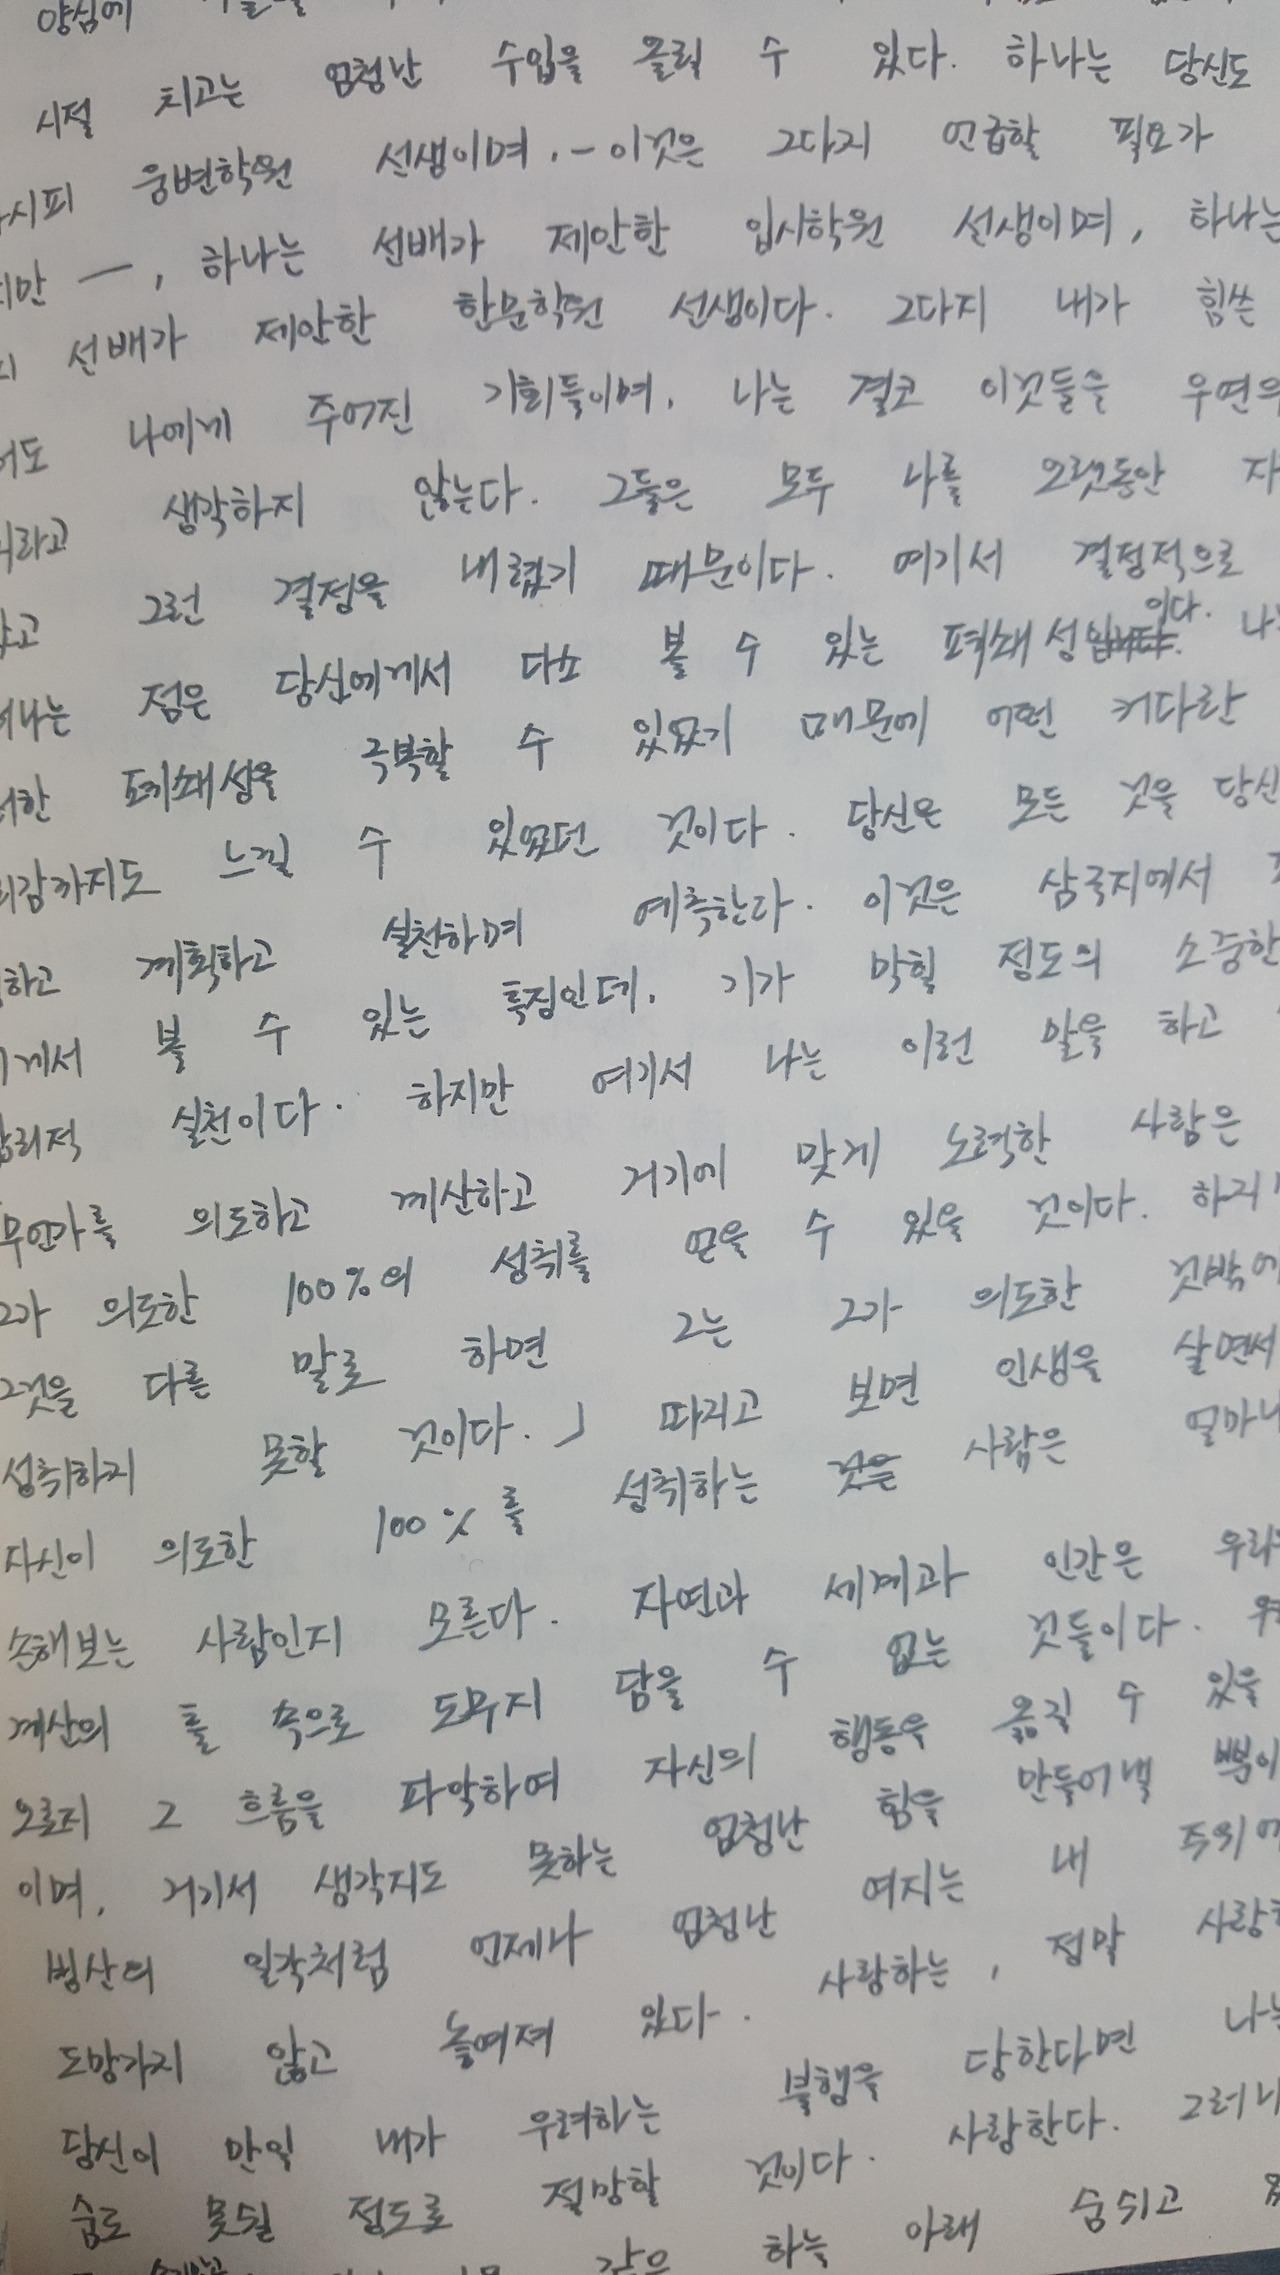 양심에
시절 치고는 엄청난 수입을 올릴 수 있다. 하나는 당신도
시피 웅변학원 선생이며. - 이것은 그다지 언급할 필요가
지만 —, 하나는 선배가 제안한 입시학원 선생이며, 하나는
선배가 제안한 한문학원 선생이다. 그다지 내가 힘쓴
어도 나에게 주어진 기회들이며, 나는 결코 이것들을 우연의
이라고 생각하지 않는다. 그들은 모두 나를 오랫동안
그런 결정을 내렸기 때문이다. 여기서 결정적으로
어나는 점은 당신에게서 다소 볼 수 있는 폐쇄성이다.
러한 폐쇄성을 극복할 수 있었기 때문에 어떤 커다란
리감까지도 느낄 수 있었던 것이다. 당신은 모든 것을 당신
하고 계획하고 실천하며 예측한다. 이것은 삼국지에서
에게서 볼 수 있는 특징인데, 기가 막힐 정도의 소중한
합리적 실천이다. 하지만 여기서 나는 이런 말을 하고
무언가를 의도하고 계산하고 거기에 맞게 노력한 사람은
그가 의도한 100%의 성취를 얻을 수 있을 것이다. 하지만
그것을 다른 말로 하면 그는 그가 의도한 것밖에
성취하지 못할 것이다.」 따지고 보면 인생을 살면서
자신이 의도한 100%를 성취하는 것은 사람은 얼마나
손해보는 사람인지 모른다. 자연과 세계과 인간은 우리의
계산의 틀 속으로 도무지 담을 수 없는 것들이다. 우리
오로지 그 흐름을 파악하여 자신의 행동을 옮길 수 있을
이며, 거기서 생각지도 못하는 엄청난 힘을 만들어낼 뿐이
빙산의 일각처럼 언제나 엄청난 여지는 내 주위에
도망가지 않고 놓여져 있다. 사랑하는, 정말 사랑하
당신이 만일 내가 우려하는 불행을 당한다면 나는
숨도 못쉴 정도로 절망할 것이다. 사랑한다. 그러니
같은 하늘 아래 숨쉬고